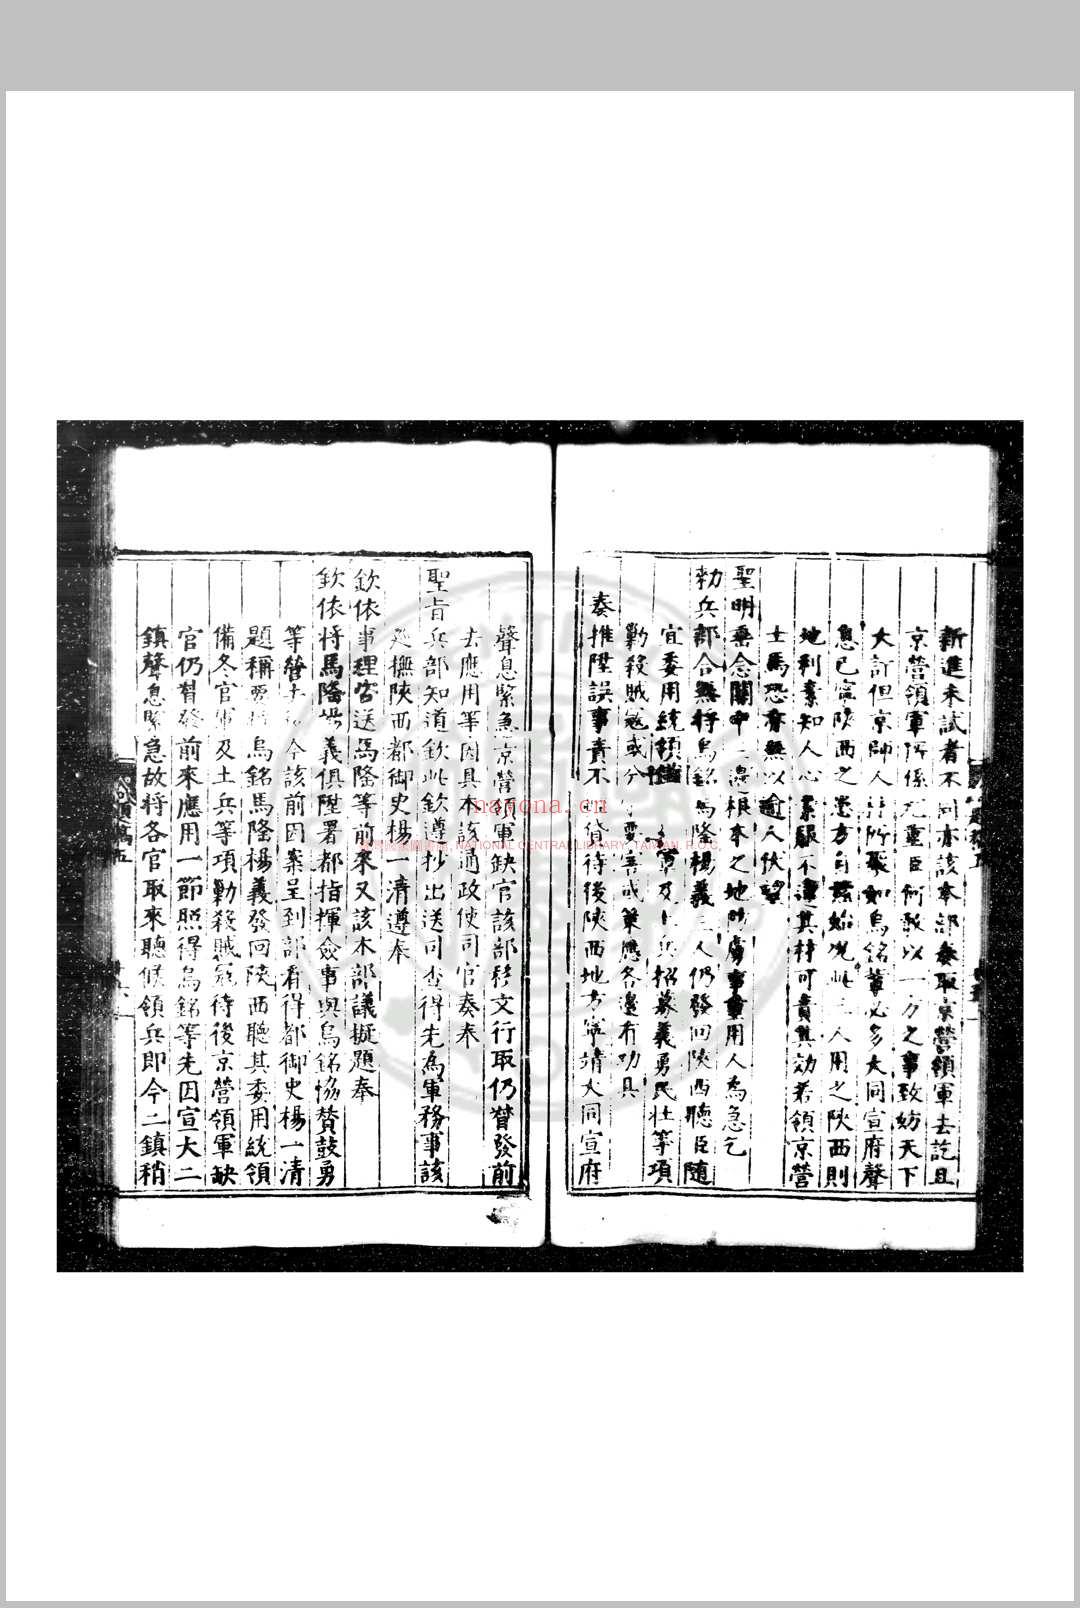 新進未試者不同亦該本部奏取京營領軍去訖且
京營領軍所係尤重臣何敢以一方之事致妨天下
大計但京師人所聚如烏銘輩必多大同宣府聲
息已寧陝西之患方自此三人用之陝西則
地利素知人心素服不違其材可責其効若領京營
士馬恐亦無以逾人伏望
聖明垂念關中三邊根本之地防虜事重用人為急乞
勑兵部合無將烏銘馬隆楊義三人仍發回陝西聽臣隨
宜委用統領軍及士兵招募義勇民壯等項
勦殺賊寇或分策應各邊有功具
奏推陞誤事責不貸待後陝西地方寧靖大同宣府
聲息緊急京營領軍缺官該部移文行取仍督發前
去應用等因具本該通政使司官奏奉
聖旨兵部知道欽此欽遵抄出送司查得先為軍務事該
巡撫陝西都御史楊一清遵奉
欽依事理咨送馬隆等前來又該本部議擬題奉
欽依將馬隆楊義俱陞署都指揮僉事與烏銘協贊鼓勇
等營去後今該前因案呈到部看得都御史楊一清
題稱要將烏銘馬隆楊義發回陝西聽其委用統領
備冬官軍及土兵等項勦殺賊寇待後京營領軍缺
官仍督發前來應用一節照得烏銘等先因宣大二
鎮聲息緊急故將各官取來聽候領兵即今二鎮稍
nayona.cn
NATIONAL CENTRAL LIBRARY, TAIWAN, R.O.C.